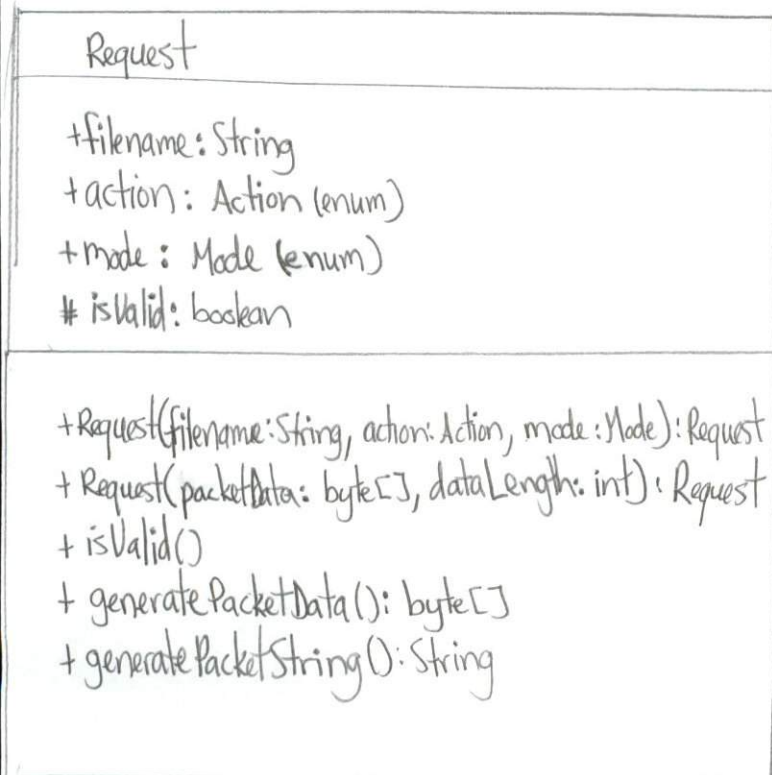 Request
+filename: String
+action: Action (enum)
+mode: Mode (enum)
# isValid: boolean
+Request(filename: String, action: Action, mode: Mode): Request
+ Request(packetData: byte[], dataLength: int): Request
+ isValid()
+ generatePacketData(): byte[]
+ generatePacketString(): String